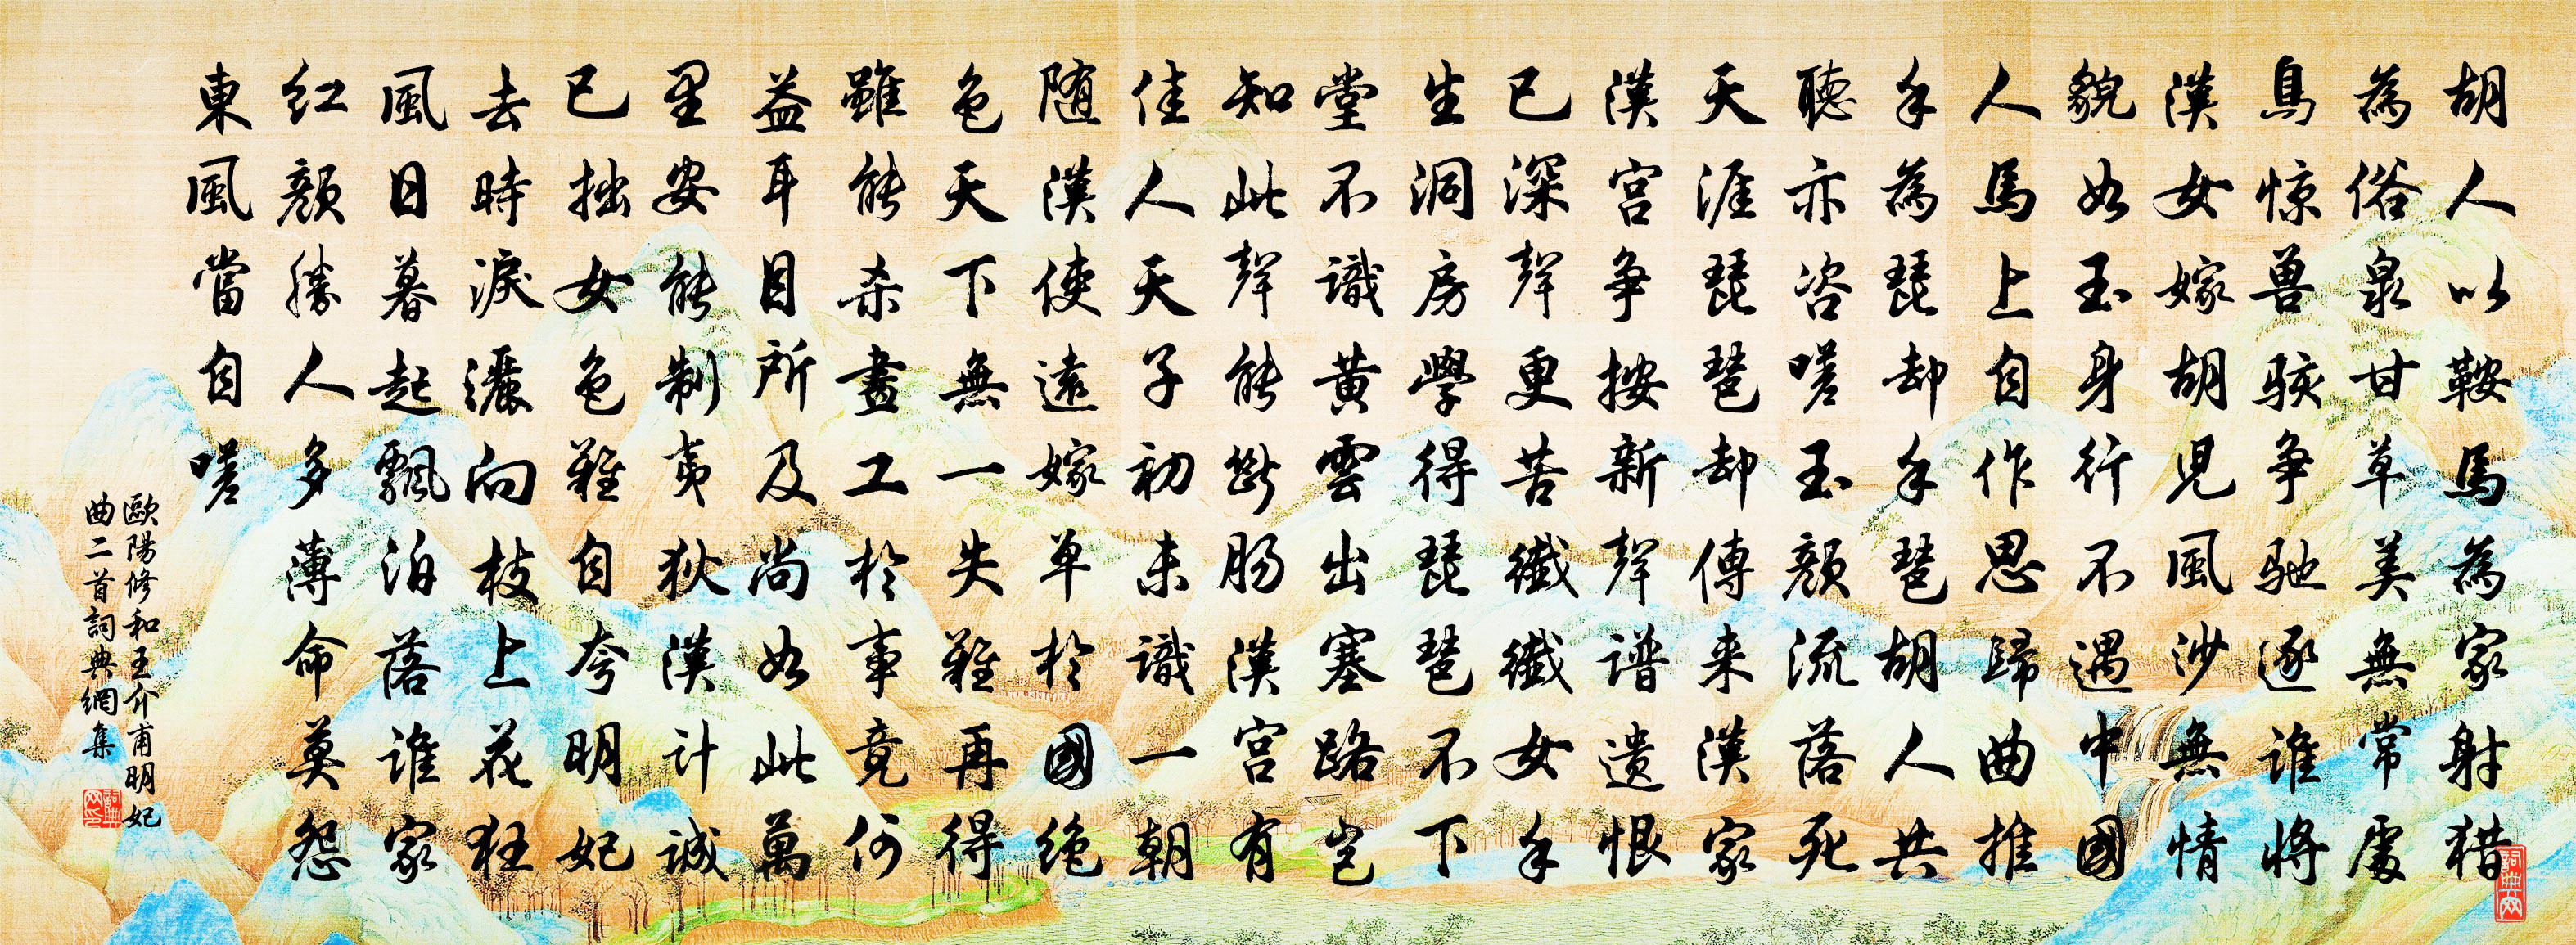 胡人以鞍馬為家射猎
為俗泉甘草美無常處
鳥惊兽駭争馳逐誰將
漢女嫁胡兒風沙無情
貌如玉身行不遇中國
人馬上自作思歸曲推
手為琵却手琶胡人共
聽亦咨嗟玉顏流落死
天涯琵琶却傳来漢家
漢宮争按新聲谱遗恨
已深聲更苦纖纖女手
生洞房學得琵琶不下
堂不識黄雲出塞路岂
知此聲能斷肠漢宮有
佳人天子初未識一朝
随漢使遠嫁單於國绝
色天下無一失難再得
雖能杀畫工於事竟何
益耳目所及尚如此萬
里安能制夷狄漢計誠
已拙女色難自夸明妃
去時淚灑向枝上花狂
風日暮起飄泊落誰家
红顏勝人多薄命莫怨
東風當自嗟
歐陽修和王介甫明妃
曲二首詞典網集
詞典网印
詞典网